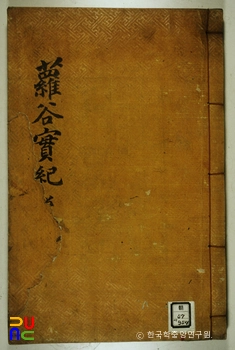 蘿谷實紀
PUAC
© 한국학중앙연구원